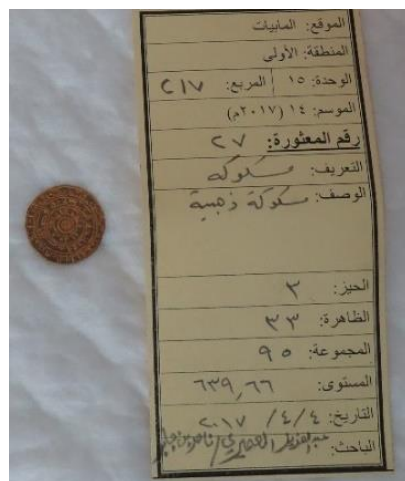 الموقع: المابيات
المنطقة: الأولى
الوحدة: ١٥ المربع: ٢١٧
الموسم: ١٤ (٢٠١٧م)
رقم المعثورة: ٢٧
التعريف: مسكوكه
الوصف: مسكوكة ذهبية
الحيز: ٣
الظاهرة: ٣٣
المجموعة: ٩٥
المستوى: ٦٣٩,٦٦
التاريخ: ٤/٤/٢٠١٧
الباحث: عبدالعزيز